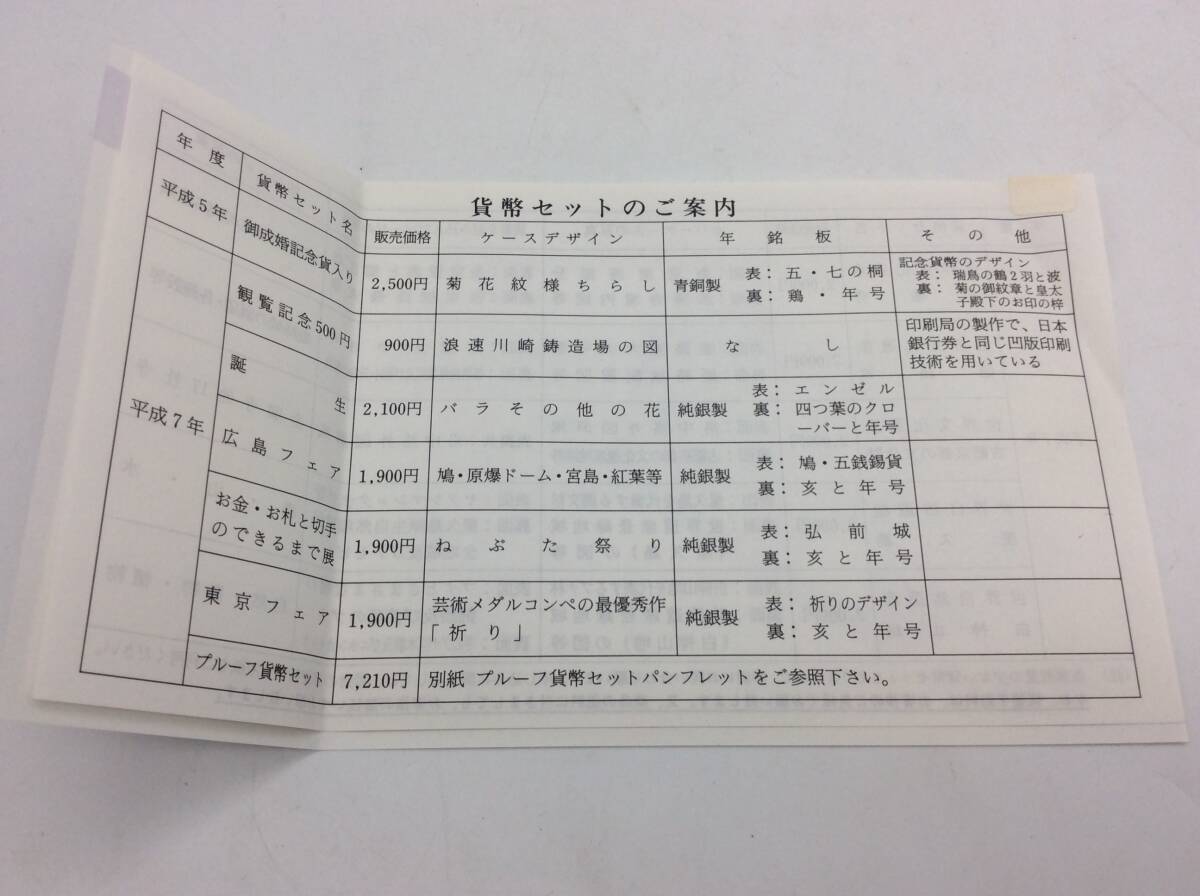 貨幣セットのご案内
年度 貨幣セット名 販売価格 ケースデザイン 年銘板 その他
平成5年 御成婚記念貨入り 2,500円 菊花紋様ちらし 青銅製 表：五・七の桐
裏：鶏・年号
記念貨幣のデザイン
表：瑞鳥の鶴2羽と波
裏：菊の御紋章と皇太
子殿下のお印の梓
平成7年
観覧記念500円 900円 浪速川崎鋳造場の図 なし
印刷局の製作で、日本
銀行券と同じ凹版印刷
技術を用いている
誕生 2,100円 バラその他の花 純銀製 表：エンゼル
裏：四つ葉のクロ
ーバーと年号
広島フェア 1,900円 鳩・原爆ドーム・宮島・紅葉等 純銀製 表：鳩・五銭錫貨
裏：亥と年号
お金・お札と切手
のできるまで展 1,900円 ねぷた祭り 純銀製 表：弘前城
裏：亥と年号
東京フェア 1,900円 芸術メダルコンペの最優秀作
「祈り」 純銀製 表：祈りのデザイン
裏：亥と年号
プルーフ貨幣セット 7,210円 別紙 プルーフ貨幣セットパンフレットをご参照下さい。